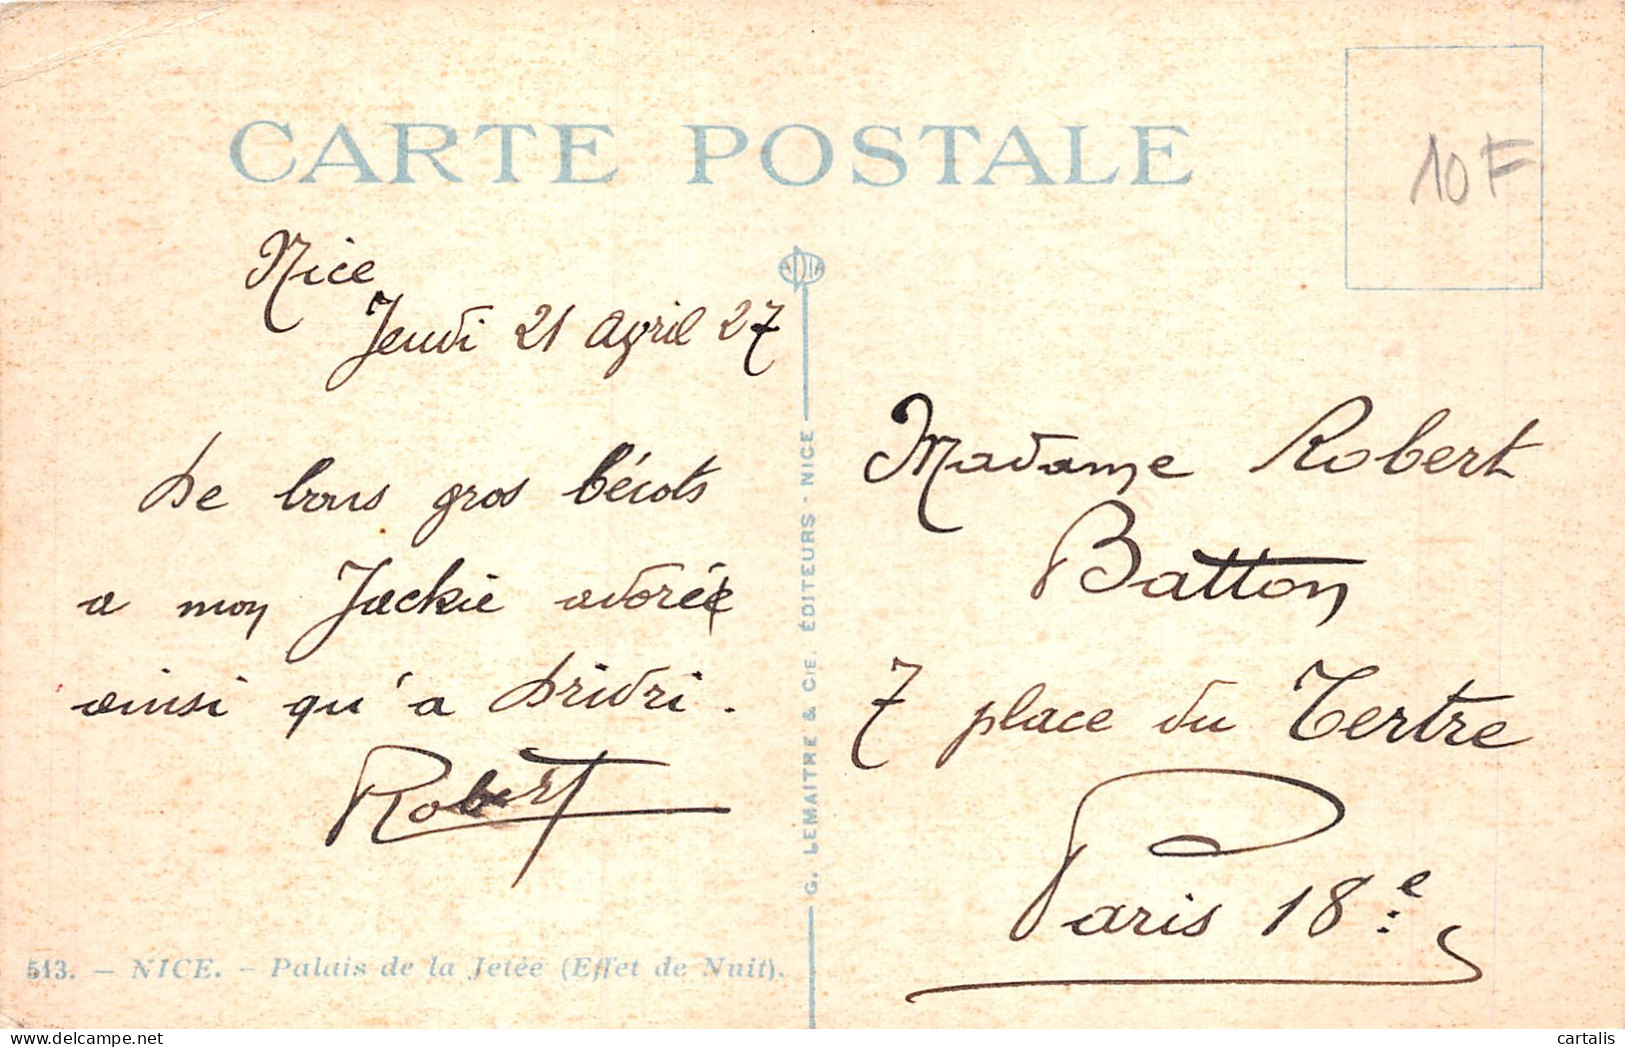 CARTE POSTALE
10F
Nice
Jeudi 21 avril 27
De bons gros bécots
a mon Jackie adorée
ainsi qu'a Dridri.
Robert
513. - NICE. - Palais de la Jetée (Effet de Nuit).
ADIA
G. LEMAITRE & CIE. ÉDITEURS - NICE
Madame Robert
Batton
7 place du Tertre
Paris 18e
cartalis